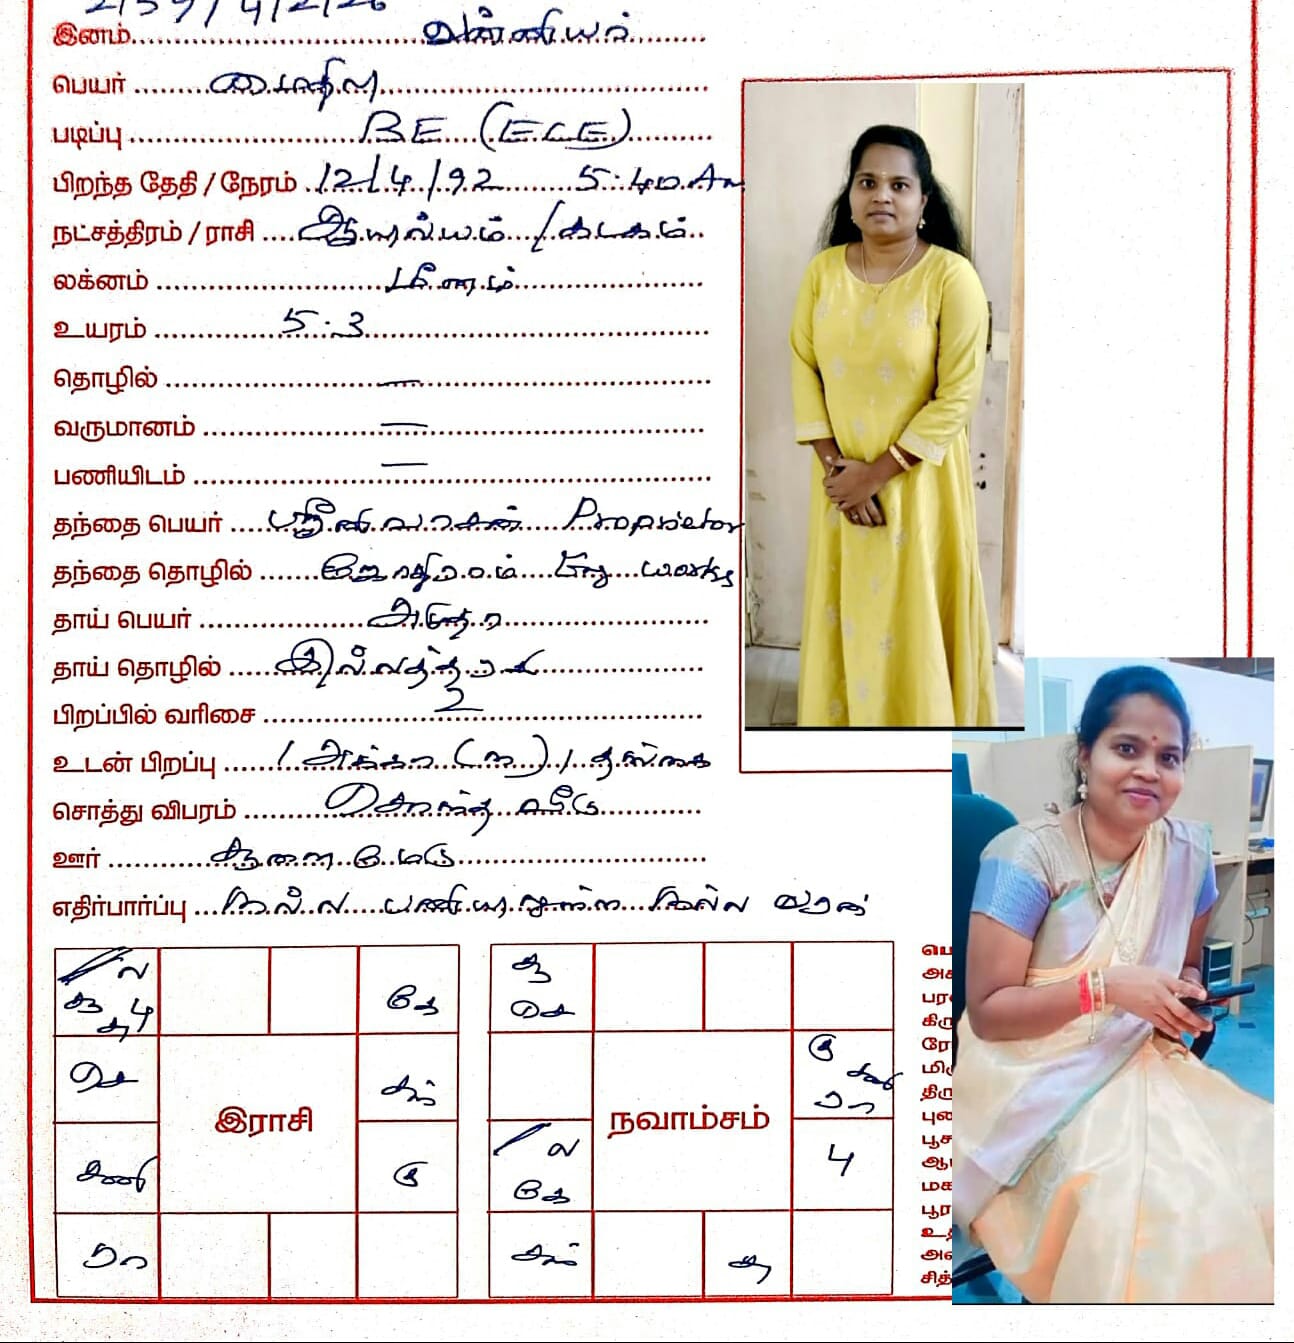 2159/4/2/26
இனம் வன்னியர்
பெயர் மைதிலி
படிப்பு BE (ECE)
பிறந்த தேதி / நேரம் 12/4/92 5:40 Am
நட்சத்திரம் / ராசி ஆயில்யம் / கடகம்
லக்னம் மீனம்
உயரம் 5:3
தொழில் —
வருமானம் —
பணியிடம் —
தந்தை பெயர் ஸ்ரீனிவாசன் Proprietor
தந்தை தொழில் Eng works
தாய் பெயர்
தாய் தொழில் இல்லத்தரசி
பிறப்பில் வரிசை 2
உடன் பிறப்பு 1 அக்கா (ம) 1 தங்கை
சொத்து விபரம் சொந்த வீடு
ஊர்
எதிர்பார்ப்பு நல்ல பணியிலுள்ள நல்ல வரன்
/ ல கே சூ செ
சூ சு 4
செ சந் கு சனி ரா
இராசி நவாம்சம்
சனி கு / ல கே 4
ரா சந் சு
பெ
அச
பர
கிரு
ரோ
மிரு
திரு
புன
பூச
ஆய
மக
பூர
உத்
அஸ்
சித்